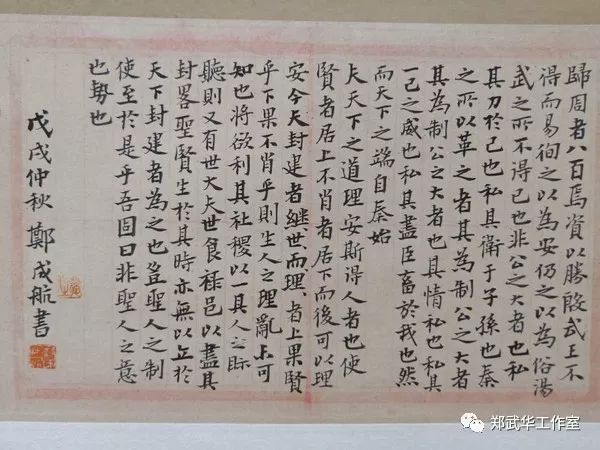 歸周者八百焉資以勝殷武王不
得而易徇之以為安仍之以為俗湯
武之所不得已也非公之大者也私
其力於己也私其衛于子孫也秦
之所以革之者其為制公之大者
其為制公之大者也其情私也私其
一己之威也私其盡臣畜於我也然
而天下之端自秦始
夫天下之道理安斯得人者也使
賢者居上不肖者居下而後可以理
安今夫封建者繼世而理者上果賢
乎下果不肖乎則生人之理亂未可
知也將欲利其社稷以一其人之眎
聽則又有世大夫世食祿邑以盡其
封畧聖賢生於其時亦無以立於
天下封建者為之也豈聖人之制
使至於是乎吾固曰非聖人之意
也勢也
戊戌仲秋 鄭成航書
郑武华工作室